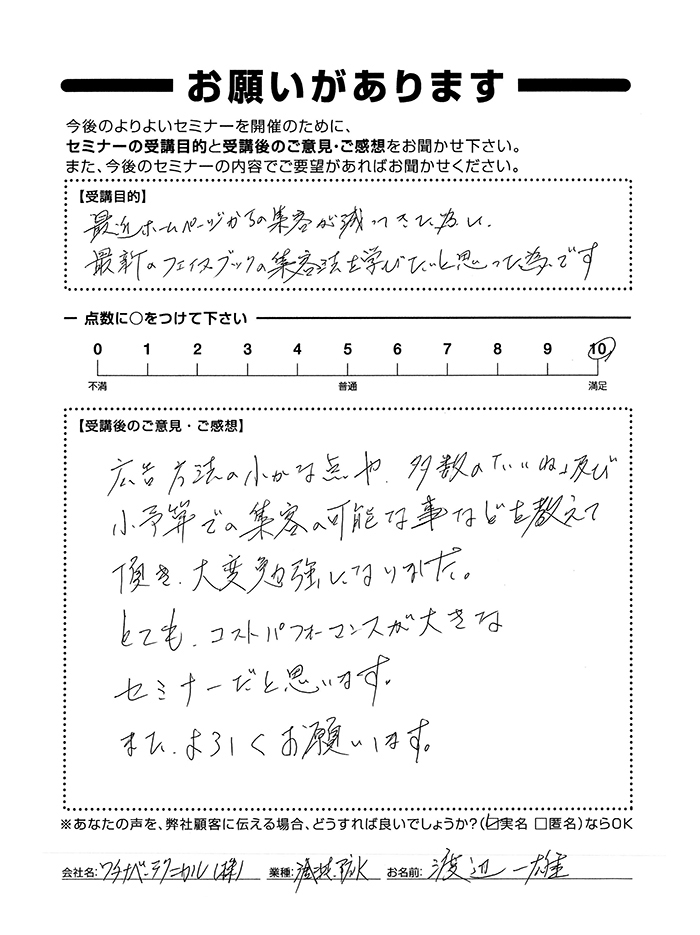 お願いがあります
今後のよりよいセミナーを開催のために、
セミナーの受講目的と受講後のご意見・ご感想をお聞かせ下さい。
また、今後のセミナーの内容でご要望があればお聞かせください。
【受講目的】
最近ホームページからの集客が減ってきた為に、
最新のフェイスブックの集客法を学びたいと思った為です
点数に○をつけて下さい
0 1 2 3 4 5 6 7 8 9 10
不満 普通 満足
【受講後のご意見・ご感想】
広告方法の小かな点や、多数の「いいね」及び
小予算での集客の可能な事などを教えて
頂き、大変勉強になりました。
とても、コストパフォーマンスが大きな
セミナーだと思います。
また、よろしくお願いします。
※あなたの声を、弊社顧客に伝える場合、どうすれば良いでしょうか？(☑実名 □匿名)ならOK
会社名：ワタナベテクニカル(株) 業種： 防水 お名前：渡辺一雄